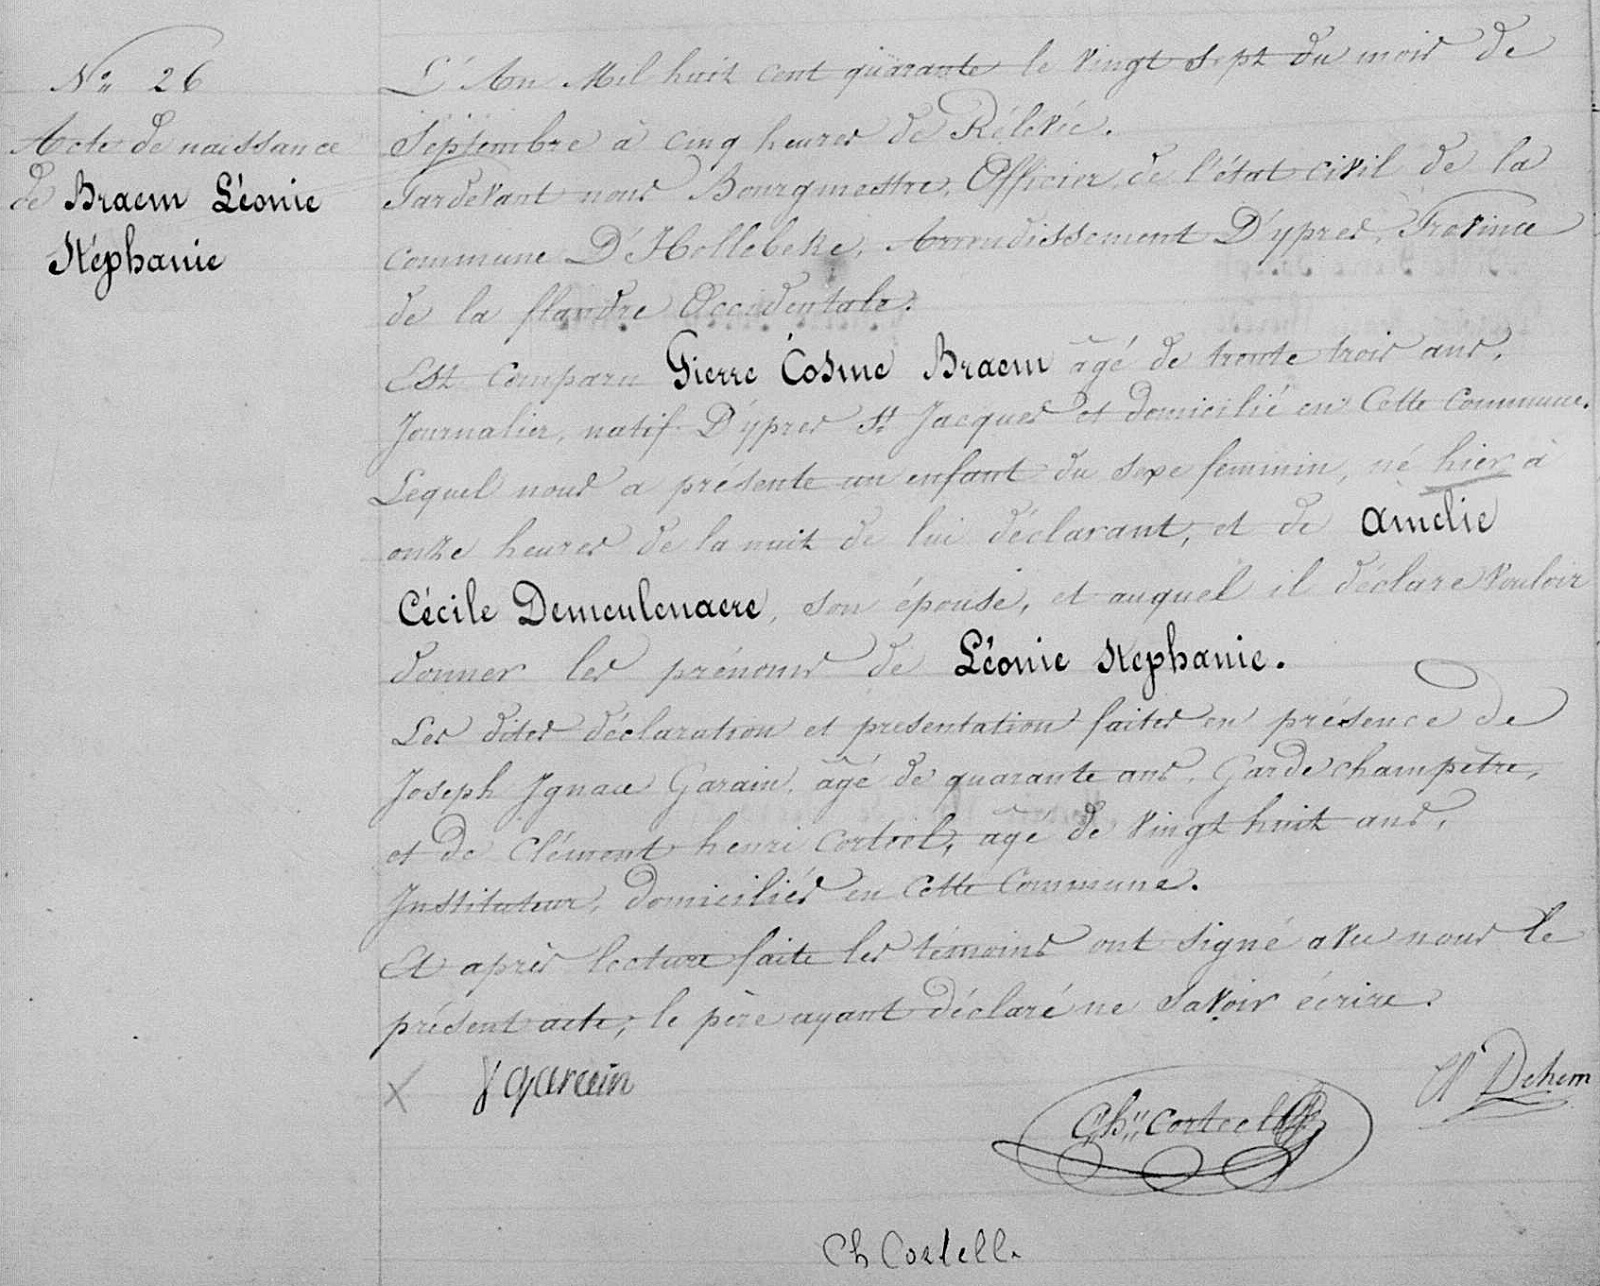 N° 26
Acte de naissance
de Braem Léonie
Stéphanie
L'An Mil huit cent quarante le vingt sept du mois de
Septembre à cinq heures de Rélevée.
Pardevant nous Bourgmestre, Officier de l'état civil de la
commune D'Hollebeke, Arrondissement D'ypres, Province
de la flandre Occidentale.
Est Comparu Pierre Cosme Braem âgé de trente trois ans,
Journalier, natif D'ypres St Jacques et domicilié en Cette Commune.
Lequel nous a présente un enfant du sexe feminin, né hier à
onze heures de la nuit de lui déclarant, et de Amelie
Cécile Demeulenaere, son épouse, et auquel il déclare vouloir
donner les prénoms de Léonie Stephanie.
Les dites déclaration et presentation faites en présence de
Joseph Ignace Garain, âgé de quarante ans, Garde champetre,
et de Clément henri Corteel, age de vingt huit ans,
Instituteur, domiciliés en Cette Commune.
Et après lecture faite les témoins ont signé avec nous le
présent acte, le père ayant déclaré ne Savoir écrire.
X J garain
Ch" Corteel
Dehem
Ch Cortell.